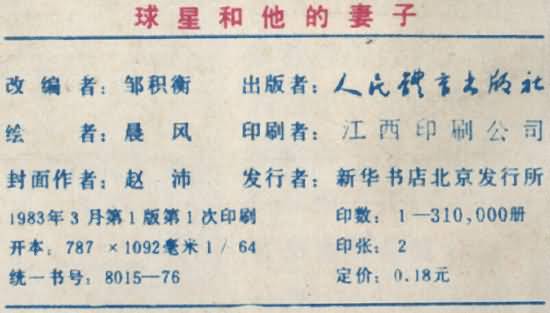 球星和他的妻子
改编者：邹积衡 出版者：人民体育出版社
绘者：晨风 印刷者：江西印刷公司
封面作者：赵沛 发行者：新华书店北京发行所
1983年3月第1版第1次印刷 印数：1—310,000册
开本：787×1092毫米1/64 印张：2
统一书号：8015—76 定价：0.18元